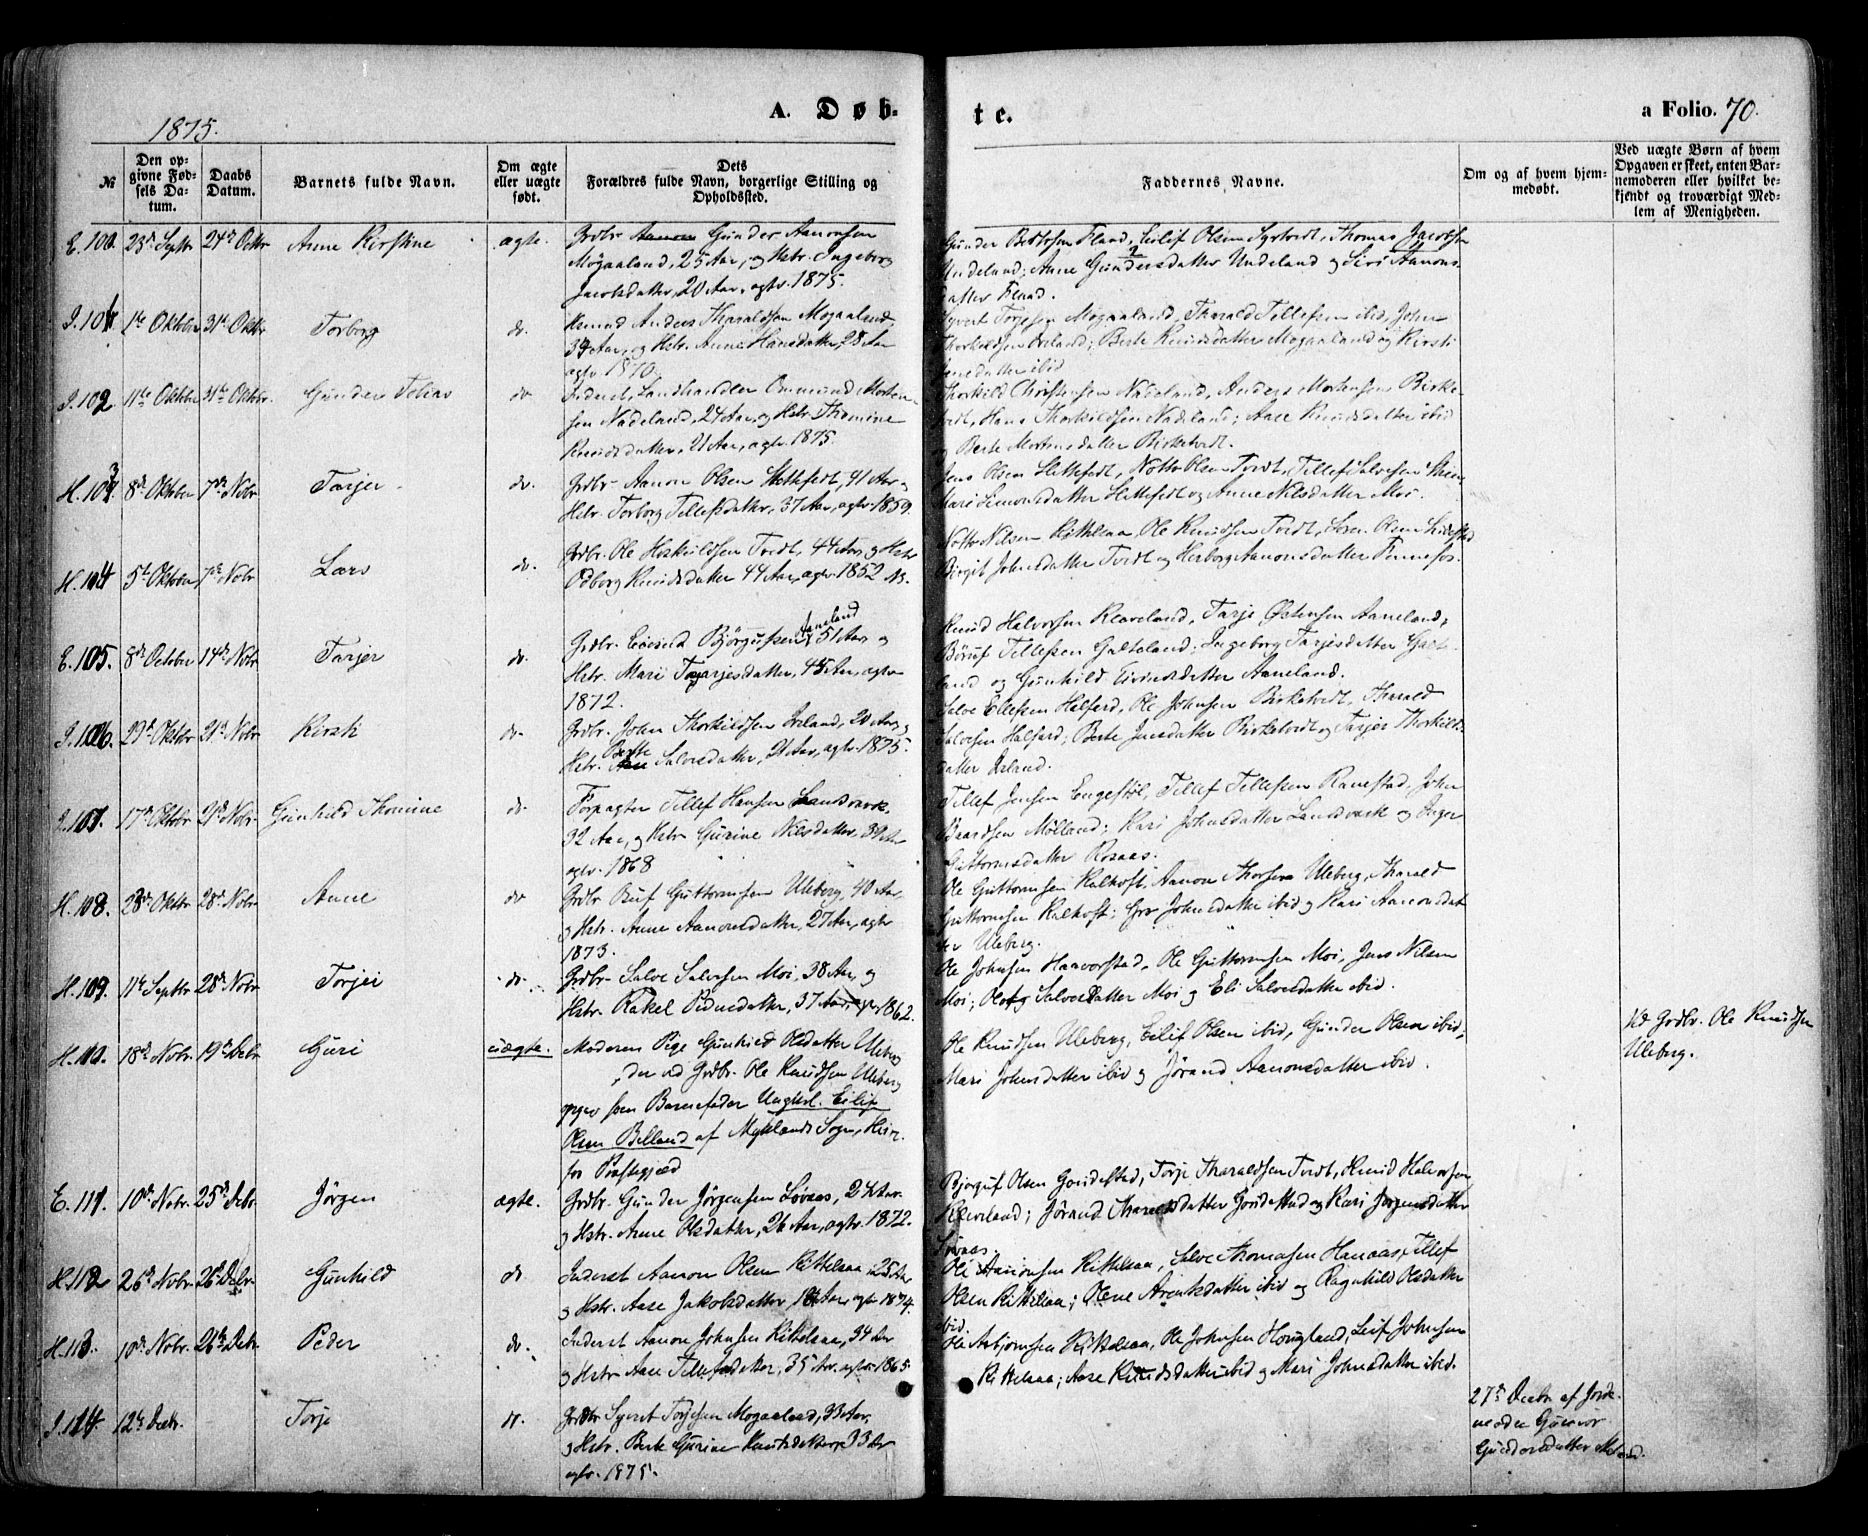 1875.
A. Døb-
te.
a Folio. 70.
№
Den opgivne Fødsels Datum.
Daabs Datum.
Barnets fulde Navn.
Om ægte eller uægte født.
Dets Forældres fulde Navn, borgerlige Stilling og Opholdssted.
Faddernes Navne.
Om og af hvem hjemmedøbt.
Ved uægte Børn af hvem Opgaven er skeet, enten Barnemoderen eller hvilket bekjendt og troværdigt Medlem af Menigheden.
E. 100. 23d Septbr 24d Octbr Anne Kirstine ægte. Grdbr. Gunder Aanonsen
Mogaaland, 25 Aar, og Hstr. Ingeborg
Jacobsdatter, 20 Aar, agtv. 1875.
Gunder Fland, Eilif Olsen Thomas Jacobsen
Undeland; Anne Gundersdatter Undeland og Siri Aanons-
datter Fland.
I. 101. 1ste Oktober 31te Oktbr Torborg do.
Anders Tharaldsen Mogaaland,
34 Aar, og Hstr. Anne Hansdatter, 28 Aar
agtv 1870.
Syvert Torjesen Mogaaland, Tharald Tellefsen ibid, John
Thorkildsen Iveland; Berte Knudsdatter Mogaaland og Kirsti
datter ibid
I. 102. 11te Oktober 31te Oktbr. Gunder Tobias do
Inderst, Landhandler Ommund Morten-
sen Nadeland, 24 Aar, og Hstr. Thomine
Knudsdatter, 21 Aar, agtv. 1875.
Thorkild Christensen Nadeland, Anders Mortensen Birke-
tvedt, Hans Thorkildsen Nadeland; Aase Knudsdatter ibid
og Berte Mortensdatter Birketvedt.
H. 103. 8de Oktober 7de Nobr Tarjer do.
Grdbr. Aanon Olsen Slettefedt, 41 Aar og
Hstr. Torborg Tellefsdatter, 37 Aar, agtv 1859.
Jens Olsen Slettefedt, Notto Olsen Tvedt, Tellef Salvesen
Mari Simonsdatter Slettefedt og Anne Nilsdatter Moi.
H. 104 5te Oktober 7de Nobr Lars do.
Grdbr. Ole Tvedt, 44 Aar, og Hstr
Odborg Knudsdatter 44 Aar, agtv. 1852
Notto Nilsen Kittelsaa, Ole Knudsen Tvedt, Soren Olsen
Birgit Johnsdatter Tvedt og Herborg Aanonsdatter
E. 105. 8de October 14de Nobr. Tarjer do.
Grdbr. Bjørgufsen Aaneland, 51 Aar og
Hstr. Mari Tarjesdatter, 45 Aar, agtv
1872.
Knud Halvorsen Klaveland, Tarje Østensen Aaneland,
Børuf Tellefsen Galteland; Ingeborg Tarjesdatter Galte-
land og Gunhild datter Aaneland.
I. 106. 29de Oktbr 21de Nobr. Kirsti do.
Grdbr. John Thorkildsen Iveland, 20 Aar, og
Hstr. Berte Salvesdatter, 21 Aar, agtv. 1875.
Salve Ellefsen Halfard, Ole Johnsen Birketvedt, Tharald
Salvesen Halfard; Berte Jensdatter Birketvedt og Tarjer Thorkilds-
datter Iveland.
I. 107. 17de Oktbr. 21de Nobr. Gunhild Thomine do
Forpagter Tellef Hansen Landsverk,
32 Aar, og Hstr Gurine Nilsdatter, 39 Aar
agtv. 1868
Tellef Jensen Engestøl, Tellef Tellefsen Ranestad, John
Baardsen Mølland; Kari Johnsdatter Landsverk og Inger
Guttormsdatter Rosaas.
H. 108. 23de Oktbr 28de Nobr. Anne do
Grdbr Buf Guttormsen Uleberg, 40 Aar,
og Hstr. Anne Aanonsdatter, 27 Aar, agtv
1873.
Ole Guttormsen Kalhoft, Aanon Thorsen Uleberg, Tharald
Guttormsen Kalhoft; Johnsdatter ibid og Kari Aanonsdat-
ter Uleberg.
H. 109. 11te Septbr. 28de Nobr. Torjei do.
Grdbr. Salve Salvesen Moi, 38 Aar, og
Hstr. Rakel Pedersdatter, 37 Aar, agtv 1862.
Ole Johnsen Haavorstad, Ole Guttormsen Moi, Jens Nilsen
Moi; Salvesdatter Moi og Eli Salvesdatter ibid.
H. 110. 18de Nobr. 19de Debr. Guri uægte.
Moderen Pige Gunhild Olsdatter Uleberg
, der ved Grdbr. Ole Knudsen Uleberg
opgav som Barnefader Ungkrl. Eilif
Olsen Belland af Myklands Sogn, Heire-
fos Præstegjæld
Ole Knudsen Uleberg, Eilif Olsen ibid, Gunder Olsen ibid,
Mari Johnsdatter ibid og Jørand Aanonsdatter ibid.
Ved Grdbr. Ole Knudsen
Uleberg.
E. 111. 10de Nobr. 25de Debr. Jørgen ægte.
Grdbr. Gunder Jörgensen Løvaas, 24 Aar.
og Hstr. Anne Olsdatter, 26 Aar, agtv. 1872.
Bjoguf Olsen Torje Tharaldsen Tvedt, Knud Halvorsen
Klaveland; Jørand Tharaldsdatter og Kari Jørgensdatter
Løvaas.
H. 112 26de Nobr. 26de Debr. Gunhild do
Inderst Aanon Olsen Kittelsaa, 25 Aar
og Hstr. Aase Jakobsdatter, Aar, agtv 1874.
Ole Aanonsen Kittelsaa, Salve Thomasen Hanaas, Tellef
Olsen Kittelsaa; Olene datter ibid og Ragnhild Olsdatter
ibid.
H. 113. 10de Nobr. 26de Debr. Peder do.
Inderst Aanon Johnsen Kittelsaa, 34 Aar
og Hstr. Aase Tellefsdatter, 35 Aar. agtv. 1865.
Ole Asbjørnsen Kittelsaa, Ole Johnsen Leif Johnsen
Kittelsaa; Aase Knudsdatter ibid og Mari Johnsdatter ibid.
I. 114. 12te Decbr. Torje do.
Grdbr Syvert Torjesen Mogaaland, 33 Aar,
og Hstr. Berte Gurine Knudsdatter, 33 Aar
agtv. 1875.
27de Decbr af Jorde-
moder
Gundersdatter